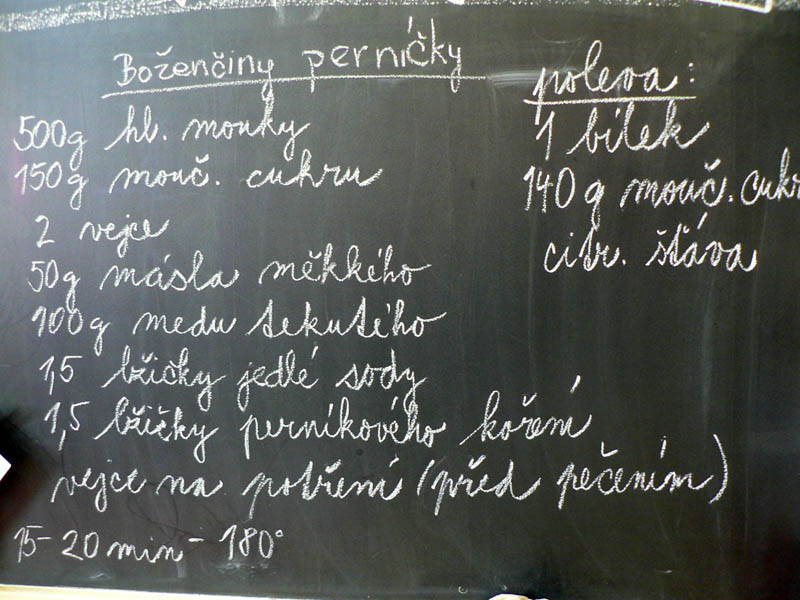 Boženčiny perníčky
500g hl. mouky
150g mouč. cukru
2 vejce
50g másla měkkého
100g medu tekutého
1,5 lžičky jedlé sody
1,5 lžičky perníkového koření
vejce na potření (před pečením)
15-20 min - 180°
poleva:
1 bílek
140g mouč. cukr
citr. šťáva